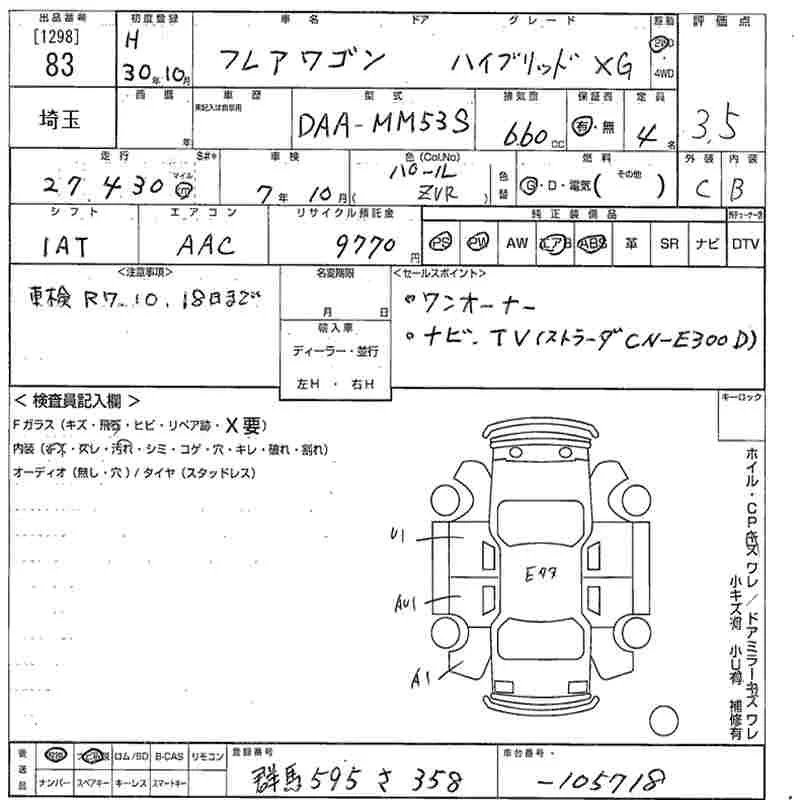 出品番号 初度登録 車名 ドア グレード 駆動 評価点
[1298] H 2WD
83 30年10月 フレアワゴン ハイブリッド XG 4WD
西暦 車歴 型式 排気量 保証書 定員
未記入は自家用
埼玉 年 DAA-MM53S 660cc 有・無 4名 3.5
走行 S#* 車検 色(Col.No) 燃料 外装 内装
27,430 マイル 7年10月 パール ZVR 色替 G・D・電気( その他 ) C B
シフト エアコン リサイクル預託金 純正装備品
IAT AAC 9770円 PS PW AW エアB ABS 革 SR ナビ DTV
<注意事項> 名変期限 <セールスポイント>
車検 R7.10.18日まで 月 日 ・ワンオーナー
輸入車 ・ナビ.TV(ストラーダCN-E300D)
ディーラー・並行
左H ・ 右H
<検査員記入欄> キーロック
Fガラス(キズ・飛石・ヒビ・リペア跡・X要)
内装(キズ・スレ・汚れ・シミ・コゲ・穴・キレ・破れ・割れ)
オーディオ(無し・穴)/タイヤ(スタッドレス)
U1
E77
AU1
A1
ホイル・CPキズ ワレ/ドアミラーキズ ワレ
小キズ有 小U有 補修有
後送品 ロム/SD B-CAS リモコン 登録番号 車台番号
ナンバー スペアキー キーレス スマートキー 群馬 595 さ 358 -105718